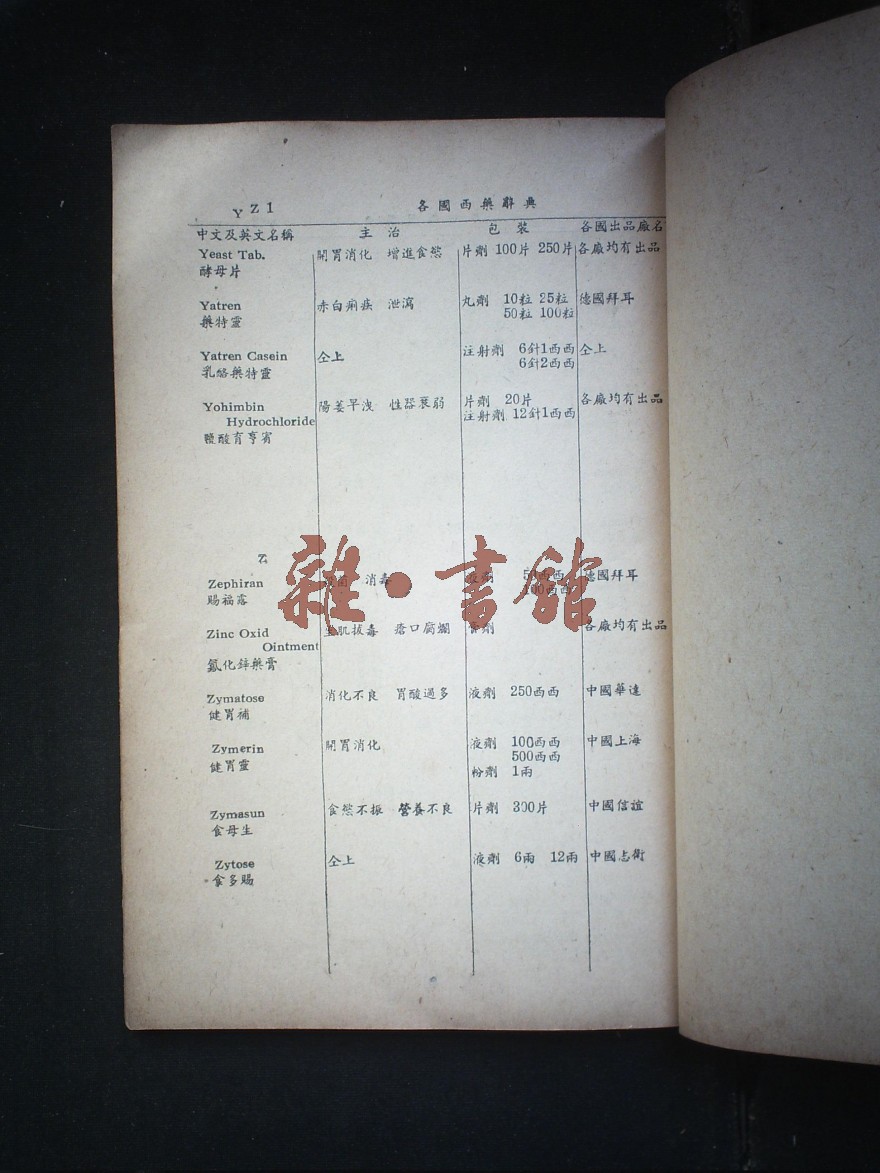 Y Z 1 各國西藥辭典
中文及英文名稱 主治 包裝 各國出品廠名
Yeast Tab. 開胃消化 增進食慾 片劑 100片 250片 各廠均有出品
酵母片
Yatren 赤白痢疾 泄瀉 丸劑 10粒 25粒 德國拜耳
藥特靈 50粒 100粒
Yatren Casein 仝上 注射劑 6針1西西 仝上
乳酪藥特靈 6針2西西
Yohimbin 陽萎早洩 性器衰弱 片劑 20片 各廠均有出品
Hydrochloride 注射劑 12針1西西
鹽酸育亨賓
Z
Zephiran 消毒 德國拜耳
賜福露 100西西
Zinc Oxid 生肌拔毒 瘡口腐爛 膏劑 各廠均有出品
Ointment
氯化鋅藥膏
Zymatose 消化不良 胃酸過多 液劑 250西西 中國華達
健胃補
Zymerin 開胃消化 液劑 100西西 中國上海
健胃靈 500西西
粉劑 1兩
Zymasun 食慾不振 營養不良 片劑 300片 中國信誼
食母生
Zytose 仝上 液劑 6兩 12兩 中國
食多賜
雜·書館